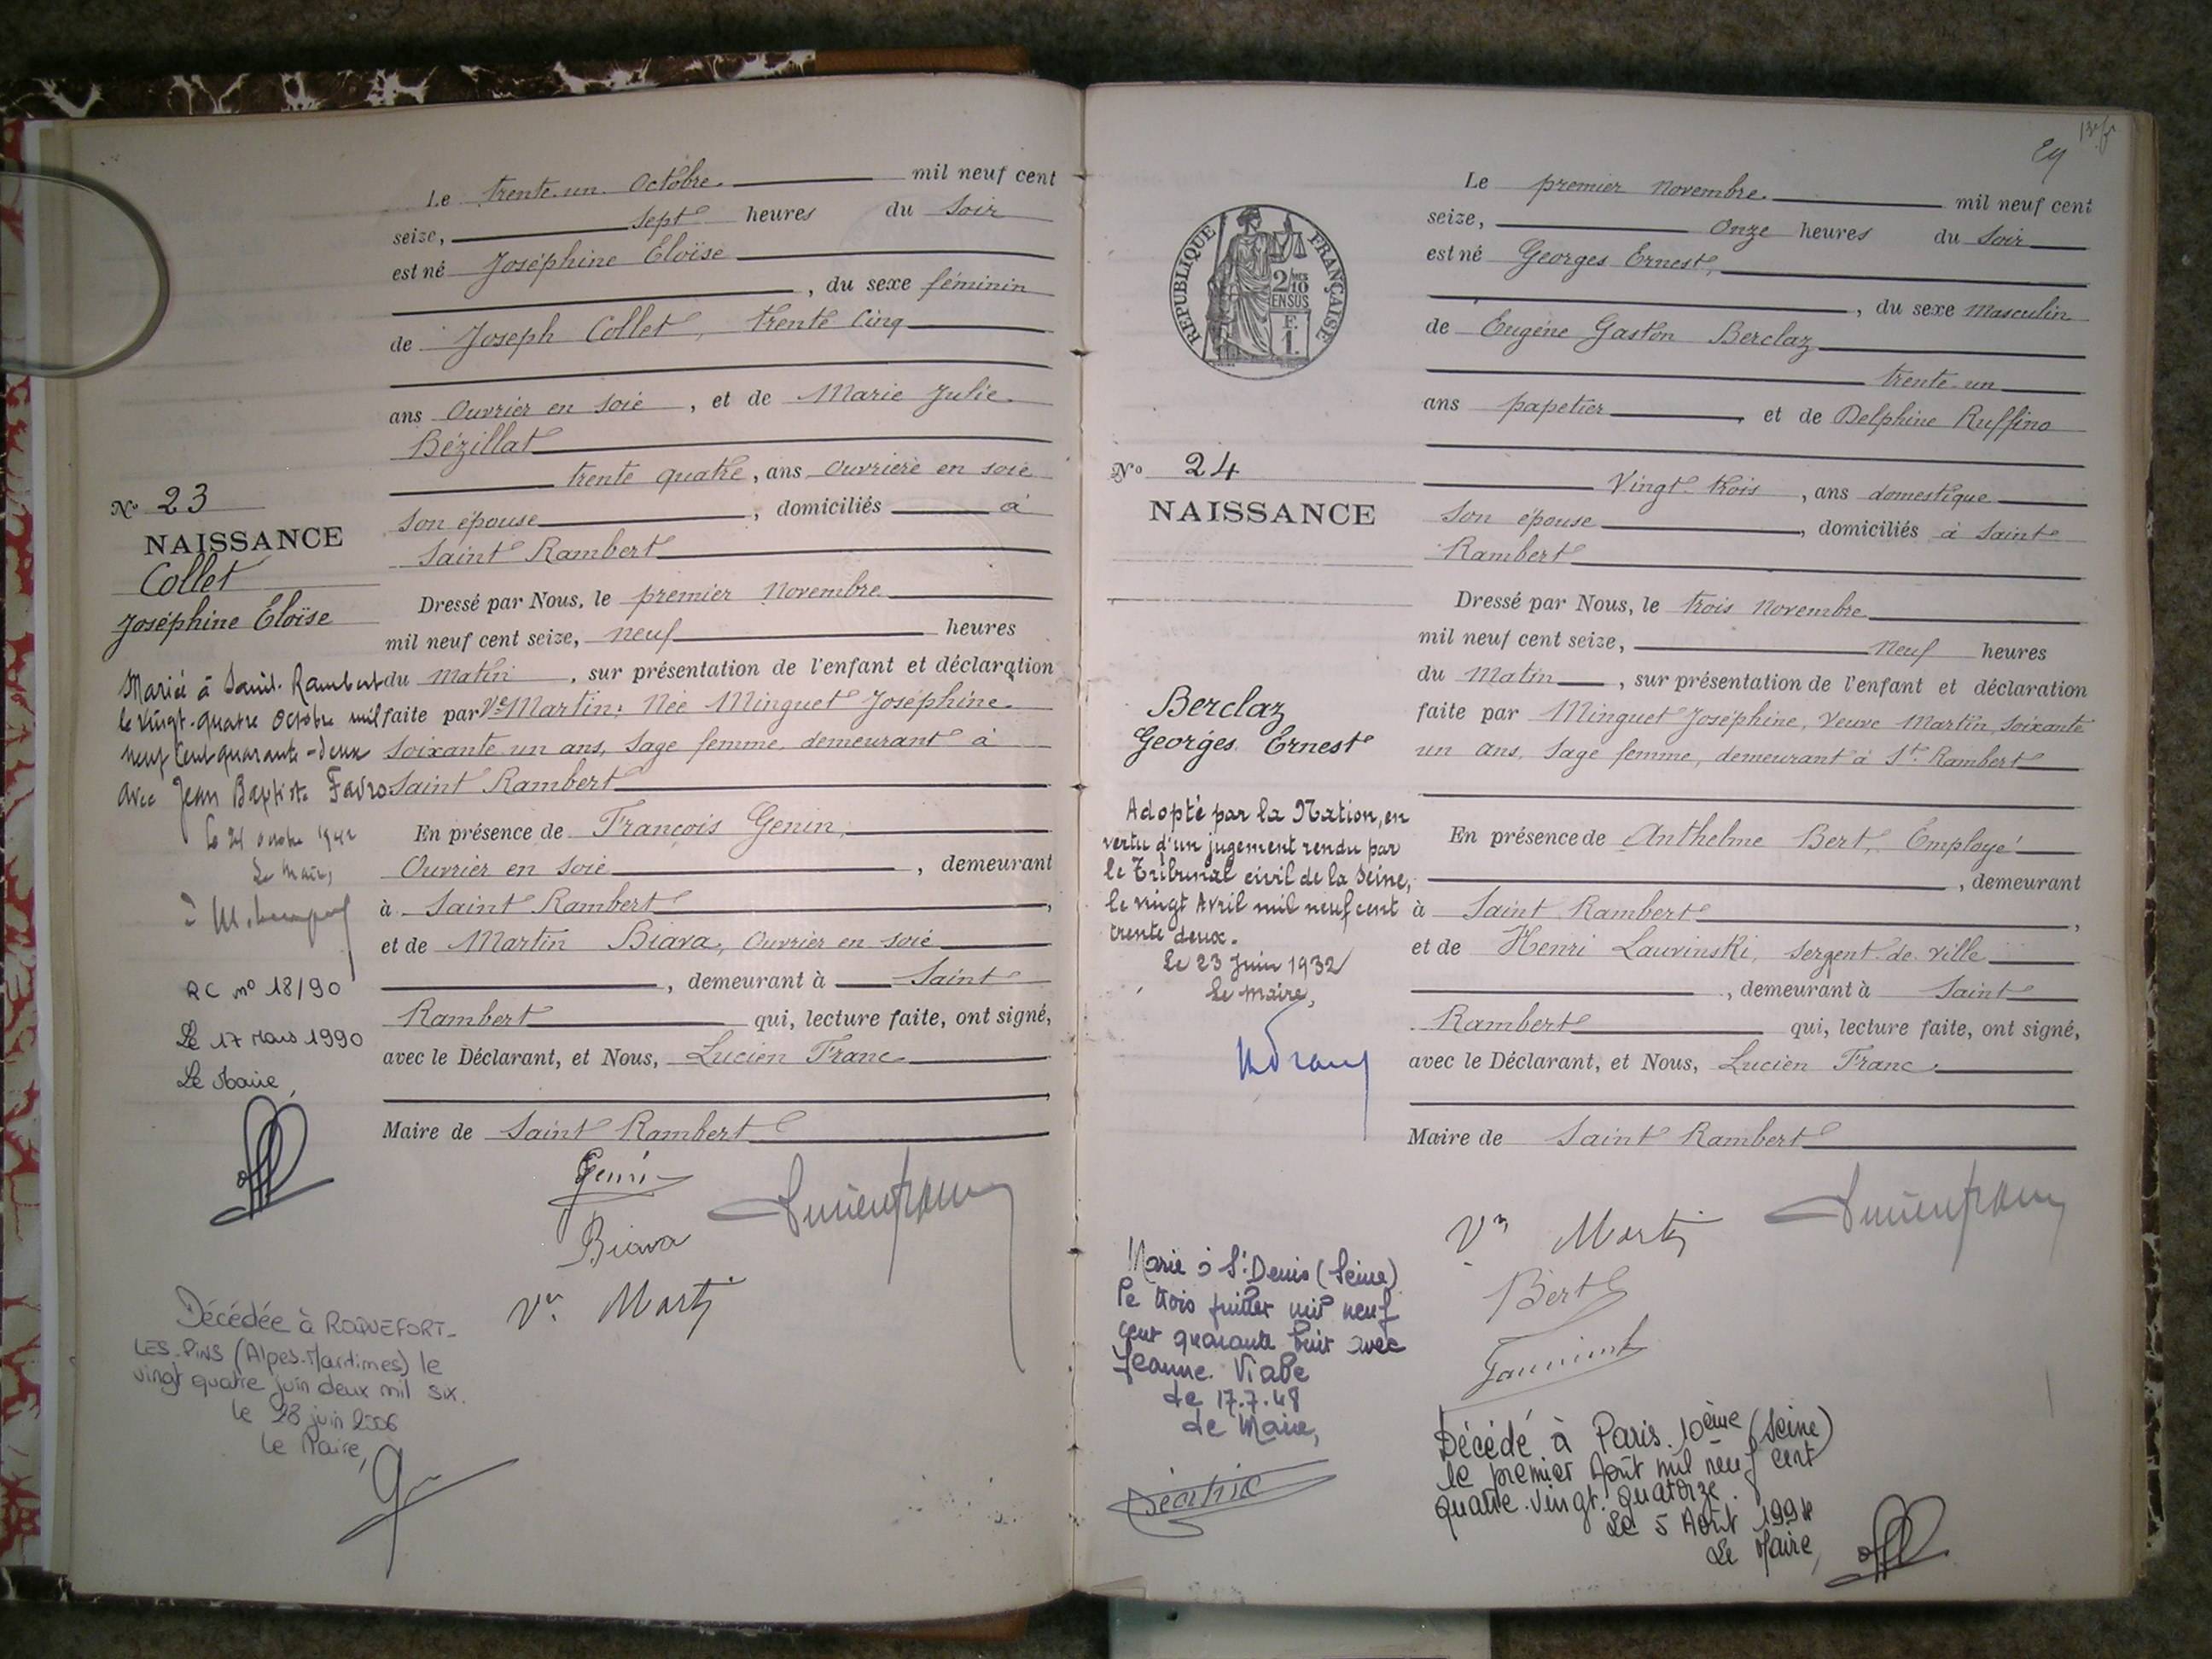 Le trente-un Octobre. mil neuf cent
seize, sept heures du Soir
est né Joséphine Eloïse
, du sexe féminin
de Joseph Collet, trente cinq
ans Ouvrier en soie, et de Marie Julie
Bézillat
trente quatre, ans Ouvrière en soie
son épouse, domiciliés à
Saint Rambert
Dressé par Nous, le premier Novembre
mil neuf cent seize, neuf heures
du matin, sur présentation de l'enfant et déclaration
faite par Ve Martin, Née Minguet Joséphine
soixante un ans, Sage femme, demeurant à
Saint Rambert
En présence de François Genin,
Ouvrier en soie, demeurant
à Saint Rambert,
et de Martin Biava, Ouvrier en soie
, demeurant à Saint
Rambert qui, lecture faite, ont signé,
avec le Déclarant, et Nous, Lucien Franc
Maire de Saint Rambert
Genin
Biava
Ve Martin
Lucien Franc
No 23
NAISSANCE
Collet
Joséphine Eloïse
Mariée à Saint-Rambert
le vingt-quatre Octobre mil
neuf cent quarante-deux
avec Jean Baptiste Favro
le 24 octobre 1942
Le Maire,
RC no 18/90
Le 17 Mars 1990
Le Maire,
Décédée à ROQUEFORT-
LES-PINS (Alpes-Maritimes) le
vingt quatre juin deux mil six.
le 28 juin 2006
Le Maire,
24
Le premier Novembre. mil neuf cent
seize, Onze heures du Soir
est né Georges Ernest,
, du sexe Masculin
de Eugène Gaston Berclaz
trente-un
ans papetier et de Delphine Ruffino
Vingt-trois, ans domestique
son épouse, domiciliés à Saint
Rambert
Dressé par Nous, le trois Novembre
mil neuf cent seize, Neuf heures
du Matin, sur présentation de l'enfant et déclaration
faite par Minguet Joséphine, Veuve Martin, soixante
un ans, Sage femme, demeurant à St Rambert
En présence de Anthelme Bert, Employé
, demeurant
à Saint Rambert,
et de Henri Lauvinski, sergent de ville
, demeurant à Saint
Rambert qui, lecture faite, ont signé,
avec le Déclarant, et Nous, Lucien Franc.
Maire de Saint Rambert
REPUBLIQUE FRANÇAISE
2/10 MES
EN SUS
F.
1.
No 24
NAISSANCE
Berclaz
Georges Ernest
Adopté par la Nation, en
vertu d'un jugement rendu par
le Tribunal civil de la Seine,
le vingt Avril mil neuf cent
trente deux.
Le 23 Juin 1932
Le Maire,
Marié à St Denis (Seine)
le trois juillet mil neuf
cent quarante huit avec
Jeanne Viale
Le 17.7.48
Le Maire,
Ve Martin
Lucien Franc
Bert
Décédé à Paris 10ème (Seine)
le premier Août mil neuf cent
quatre-vingt-quatorze.
Le 5 Août 1994
Le Maire,